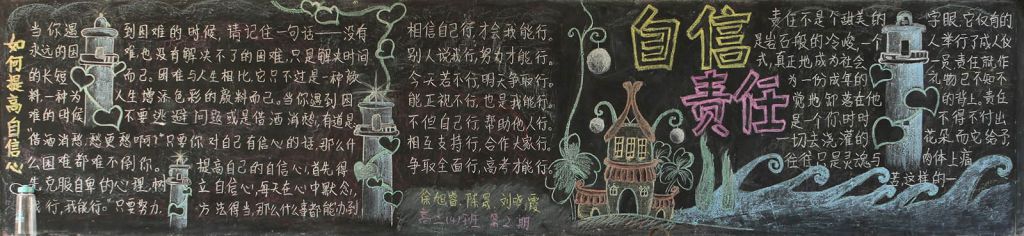 如何提高自信心
当你遇到困难的时候,请记住一句话——没有
永远的困难也没有解决不了的困难,只是解决时间
的长短而己。困难与人生相比,它只不过是一种颜
料,一种为人生增添色彩的颜料而己。当你遇到困
难的时候不要逃避问题或是借酒消愁,有道是
"借酒消愁,愁更愁啊!"只要你对自己有信心的话,那么什
么困难都难不倒你。提高自己的自信心,首先得
先克服自卑的心理,树立自信心,每天在心中默念,
"我行,我能行。"只要努力,方法得当,那么什么事都能办到
相信自己行,才会我能行。
别人说我行,努力才能行。
今天若不行,明天争取行。
能正视不行,也是我能行。
不但自己行,帮助他人行。
相互支持行,合作大家行。
争取全面行,高考才能行。
徐旭
陈
刘晓霞
班 第2期
自信
责任
责任不是个甜美的字眼,它仅有的
是岩石般的冷峻,一个人举行了成人仪
式,真正地成为社会一员,责任就作
为一份成年的礼物己不知不
觉地卸落在他的背上。责任
是个你时时不得不付出
一切去浇灌的花朵,而它给予
往往只是灵魂与肉体上痛
苦,这样的一